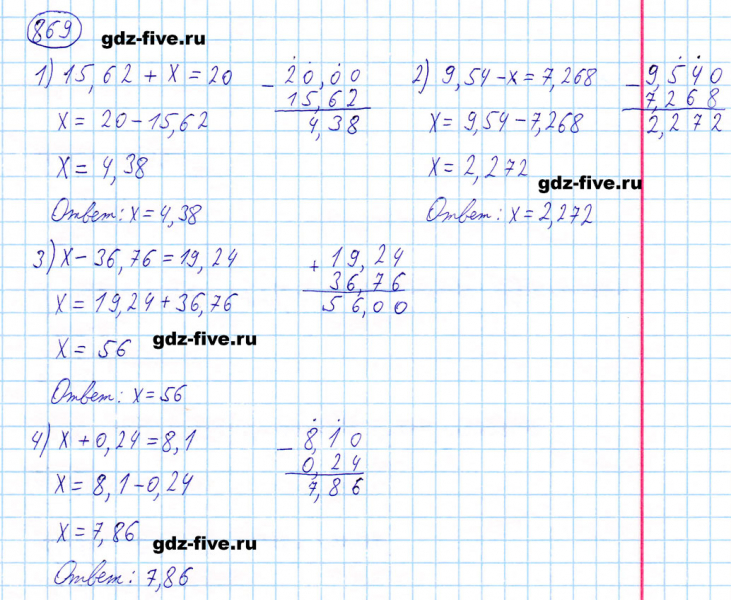 869
gdz-five.ru
1) 15,62 + x = 20
x = 20 - 15,62
x = 4,38
Ответ: x = 4,38
- 20,00
15,62
4,38
2) 9,54 - x = 7,268
x = 9,54 - 7,268
x = 2,272
gdz-five.ru
Ответ: x = 2,272
- 9,540
7,268
2,272
3) x - 36,76 = 19,24
x = 19,24 + 36,76
x = 56
gdz-five.ru
Ответ: x = 56
+ 19,24
36,76
56,00
4) x + 0,24 = 8,1
x = 8,1 - 0,24
x = 7,86
gdz-five.ru
Ответ: 7,86
- 8,10
0,24
7,86